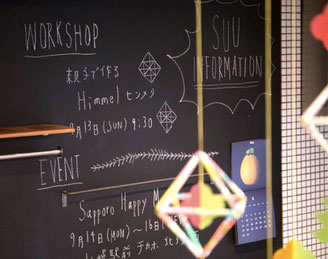 WORKSHOP
親子で作る
Himmel ヒンメリ
9月13日(SUN) 9:30
SUU
INFORMATION
EVENT
Sapporo Happy
9月14日(MON)~16日